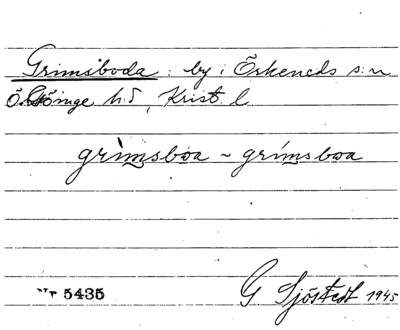 Grimsboda : by i Örkeneds s:n
Ö. Göinge h:d, Krist. l.
grìmsbωa ~ grímsbωa
Nr 5435
G. Sjöstedt 1945